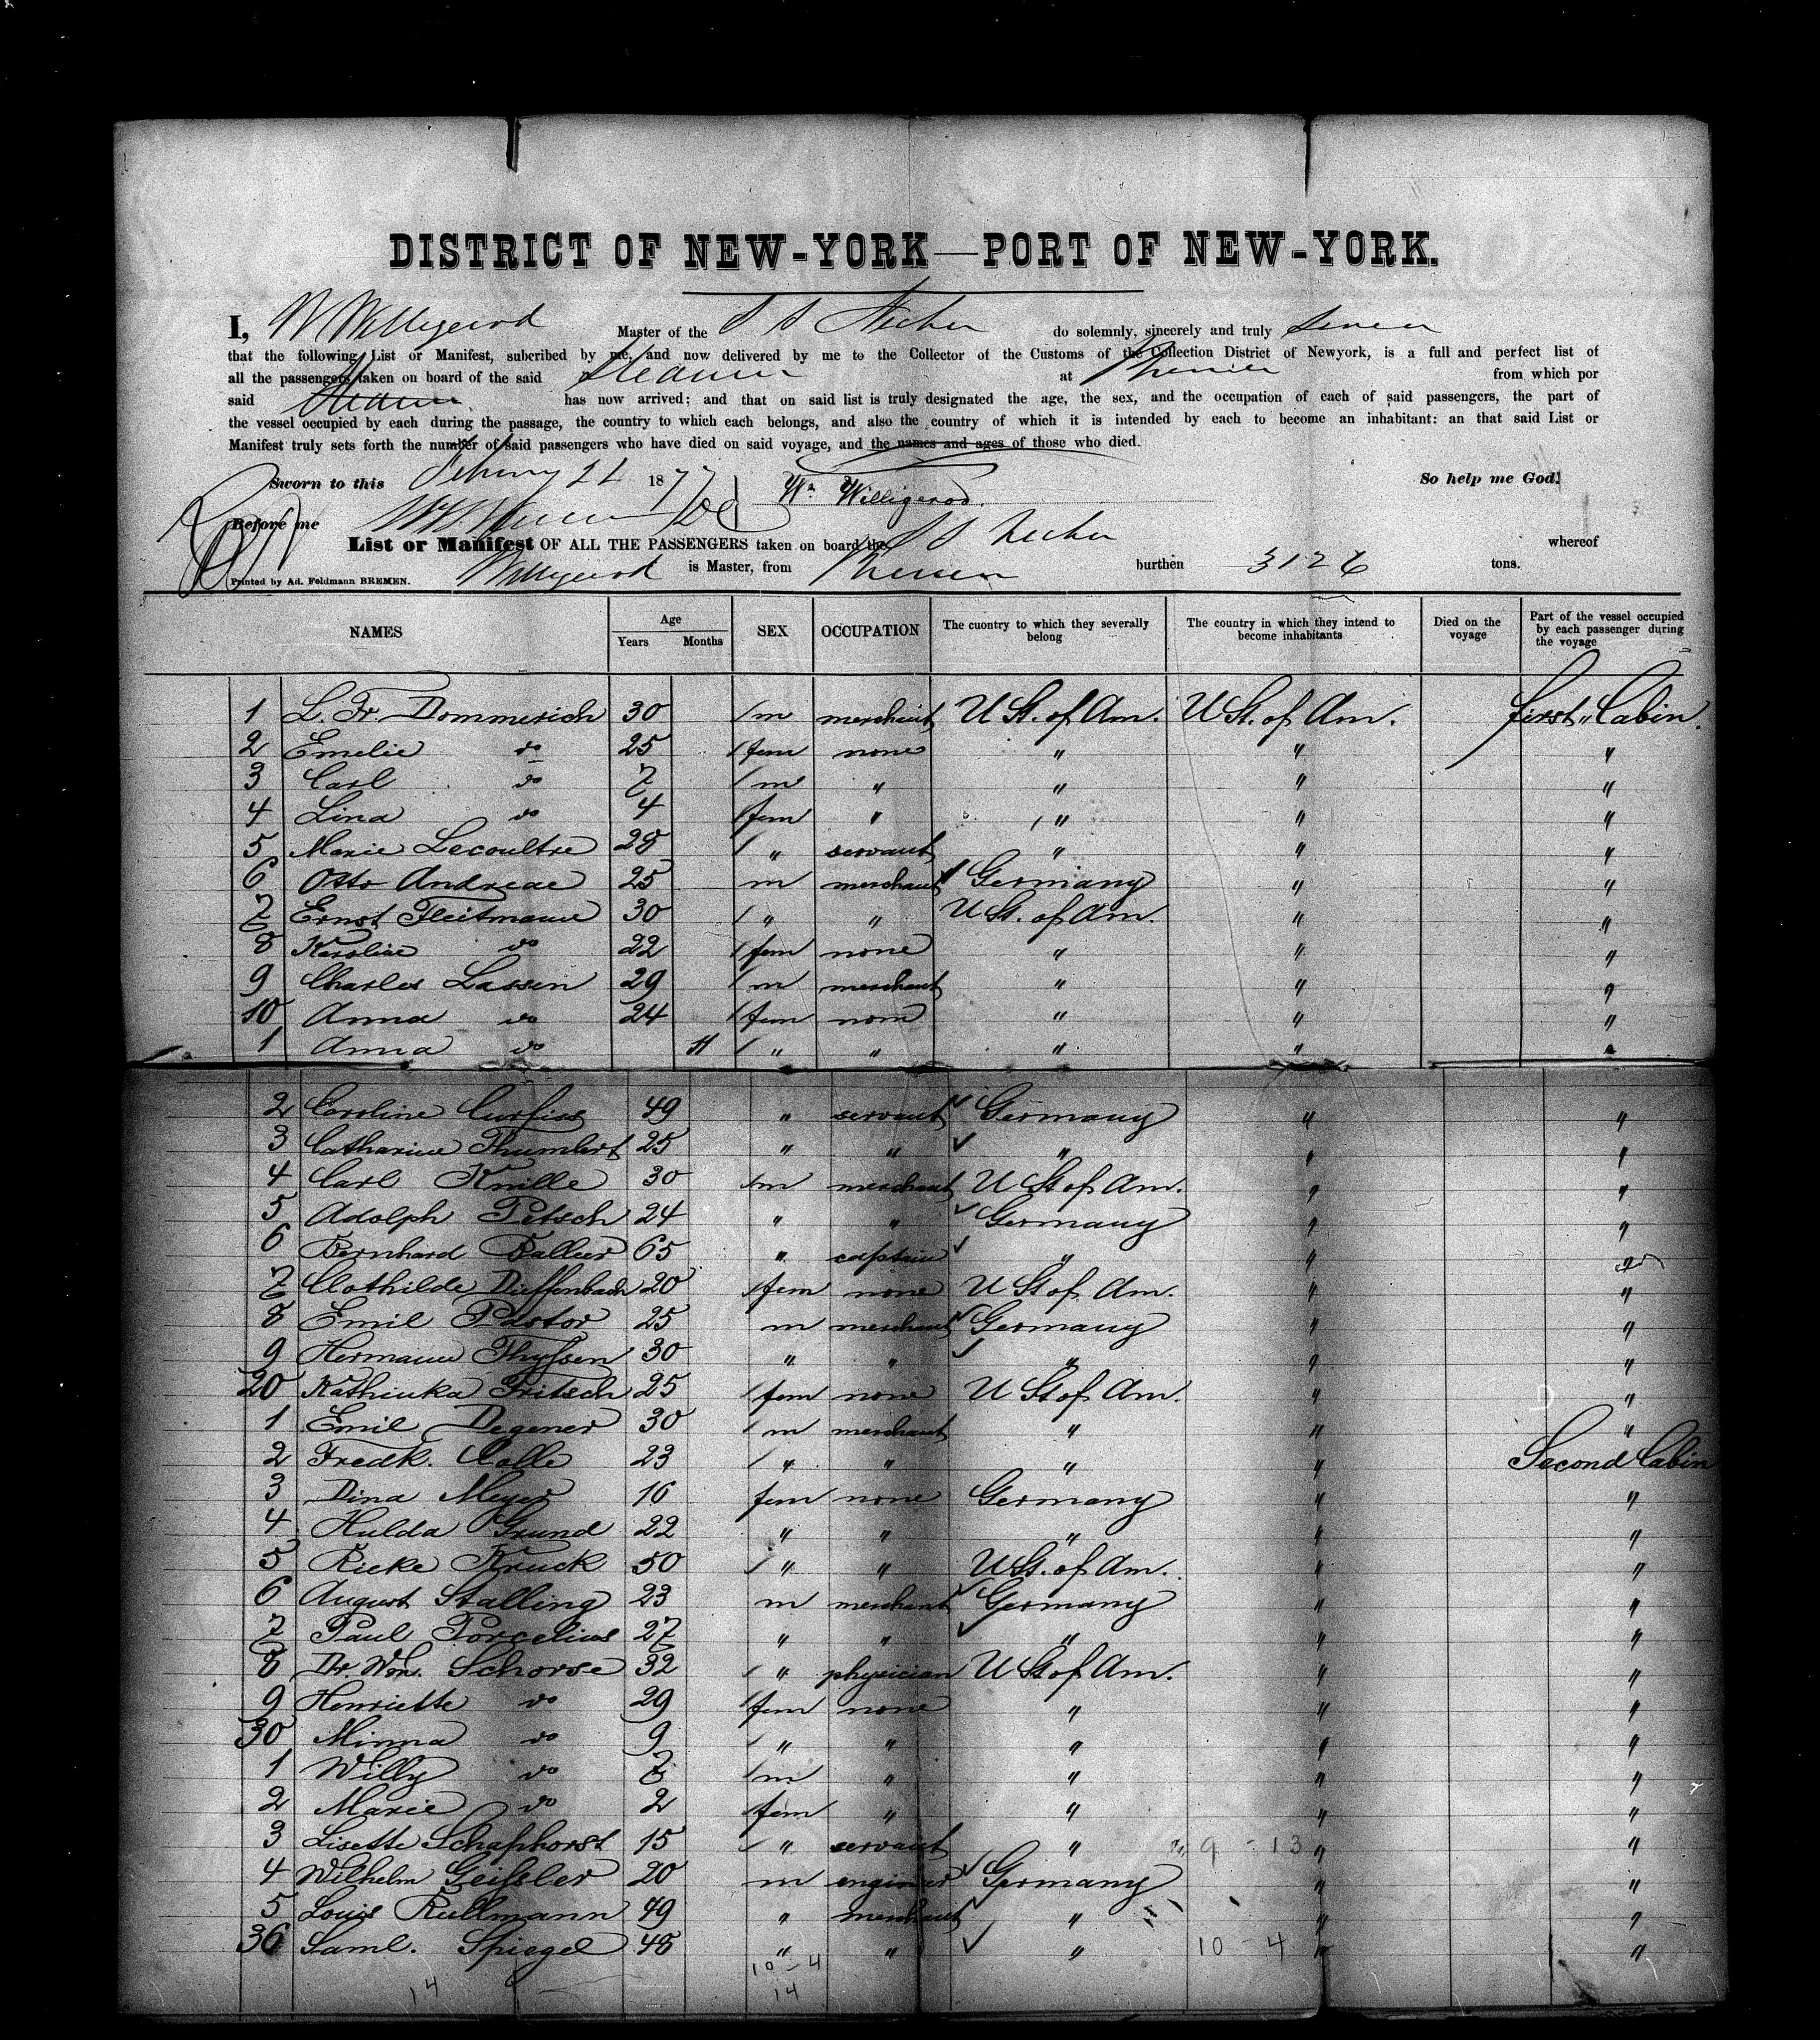 DISTRICT OF NEW-YORK—PORT OF NEW-YORK.
I, W Willigerod Master of the S S Neckar do solemnly, sincerely and truly swear
that the following List or Manifest, subcribed by me, and now delivered by me to the Collector of the Customs of the Collection District of Newyork, is a full and perfect list of
all the passengers taken on board of the said Steamer at Bremen from which por
said Steamer has now arrived; and that on said list is truly designated the age, the sex, and the occupation of each of said passengers, the part of
the vessel occupied by each during the passage, the country to which each belongs, and also the country of which it is intended by each to become an inhabitant: an that said List or
Manifest truly sets forth the number of said passengers who have died on said voyage, and the names and ages of those who died.
Sworn to this 187 So help me God!
Wm Willigerod.
Before me
List or Manifest OF ALL THE PASSENGERS taken on board the S S Neckar whereof
Willigerod is Master, from Bremen burthen 3126 tons.
Printed by Ad. Feldmann BREMEN.
NAMES Age Years Months SEX OCCUPATION The cuontry to which they severally belong The country in which they intend to become inhabitants Died on the voyage Part of the vessel occupied by each passenger during the voyage
1 L. Fr. Dommerich 30 m merchant U St. of Am. U St. of Am. first Cabin.
2 Emelie do 25 fem none " " "
3 Carl do 7 m " " " "
4 Lina do 4 fem " " " "
5 Marie Lecoultre 28 " servant " " "
6 Otto Andreae 25 m merchant Germany " "
7 Ernst Fleitmann 30 " " U St. of Am. " "
8 Karoline do 22 fem none " " "
9 Charles Lassen 29 m merchant " " "
10 Anna do 24 fem none " " "
1 Anna do 11 " " " " "
2 Caroline 49 " servant Germany " "
3 Catharine 25 " " " " "
4 Carl Knille 30 m merchant U St of Am. " "
5 Adolph Petsch 24 " " Germany " "
6 Bernhard Balleer 65 " captain " " "
7 Clothilde Dieffenbach 20 fem none U St of Am. " "
8 Emil Pastor 25 m merchant Germany " "
9 Hermann Thyssen 30 " " " " "
20 Kathinka Fritsch 25 fem none U St of Am. " "
1 Emil Degener 30 m merchant " " "
2 Fredk. Calle 23 " " " " Second Cabin
3 Dina Meyer 16 fem none Germany " "
4 Hulda Grund 22 " " " " "
5 Rieke Kruck 50 " " U St. of Am. " "
6 August Stalling 23 m merchant Germany " "
7 Paul Porcelius 27 " " " " "
8 Dr. Wm. Schorse 32 " physician U St of Am. " "
9 Henriette do 29 fem none " " "
30 Minna do 9 " " " " "
1 Willy do 7 m " " " "
2 Marie do 2 fem " " " "
3 Lisette Schaphorst 15 " servant " 9 - 13 " "
4 Wilhelm Geissler 20 m engineer Germany " "
5 Louis Rullmann 49 " merchant " " "
36 Saml. Spiegel 48 " " " 10 - 4 " "
10 - 4
14 14